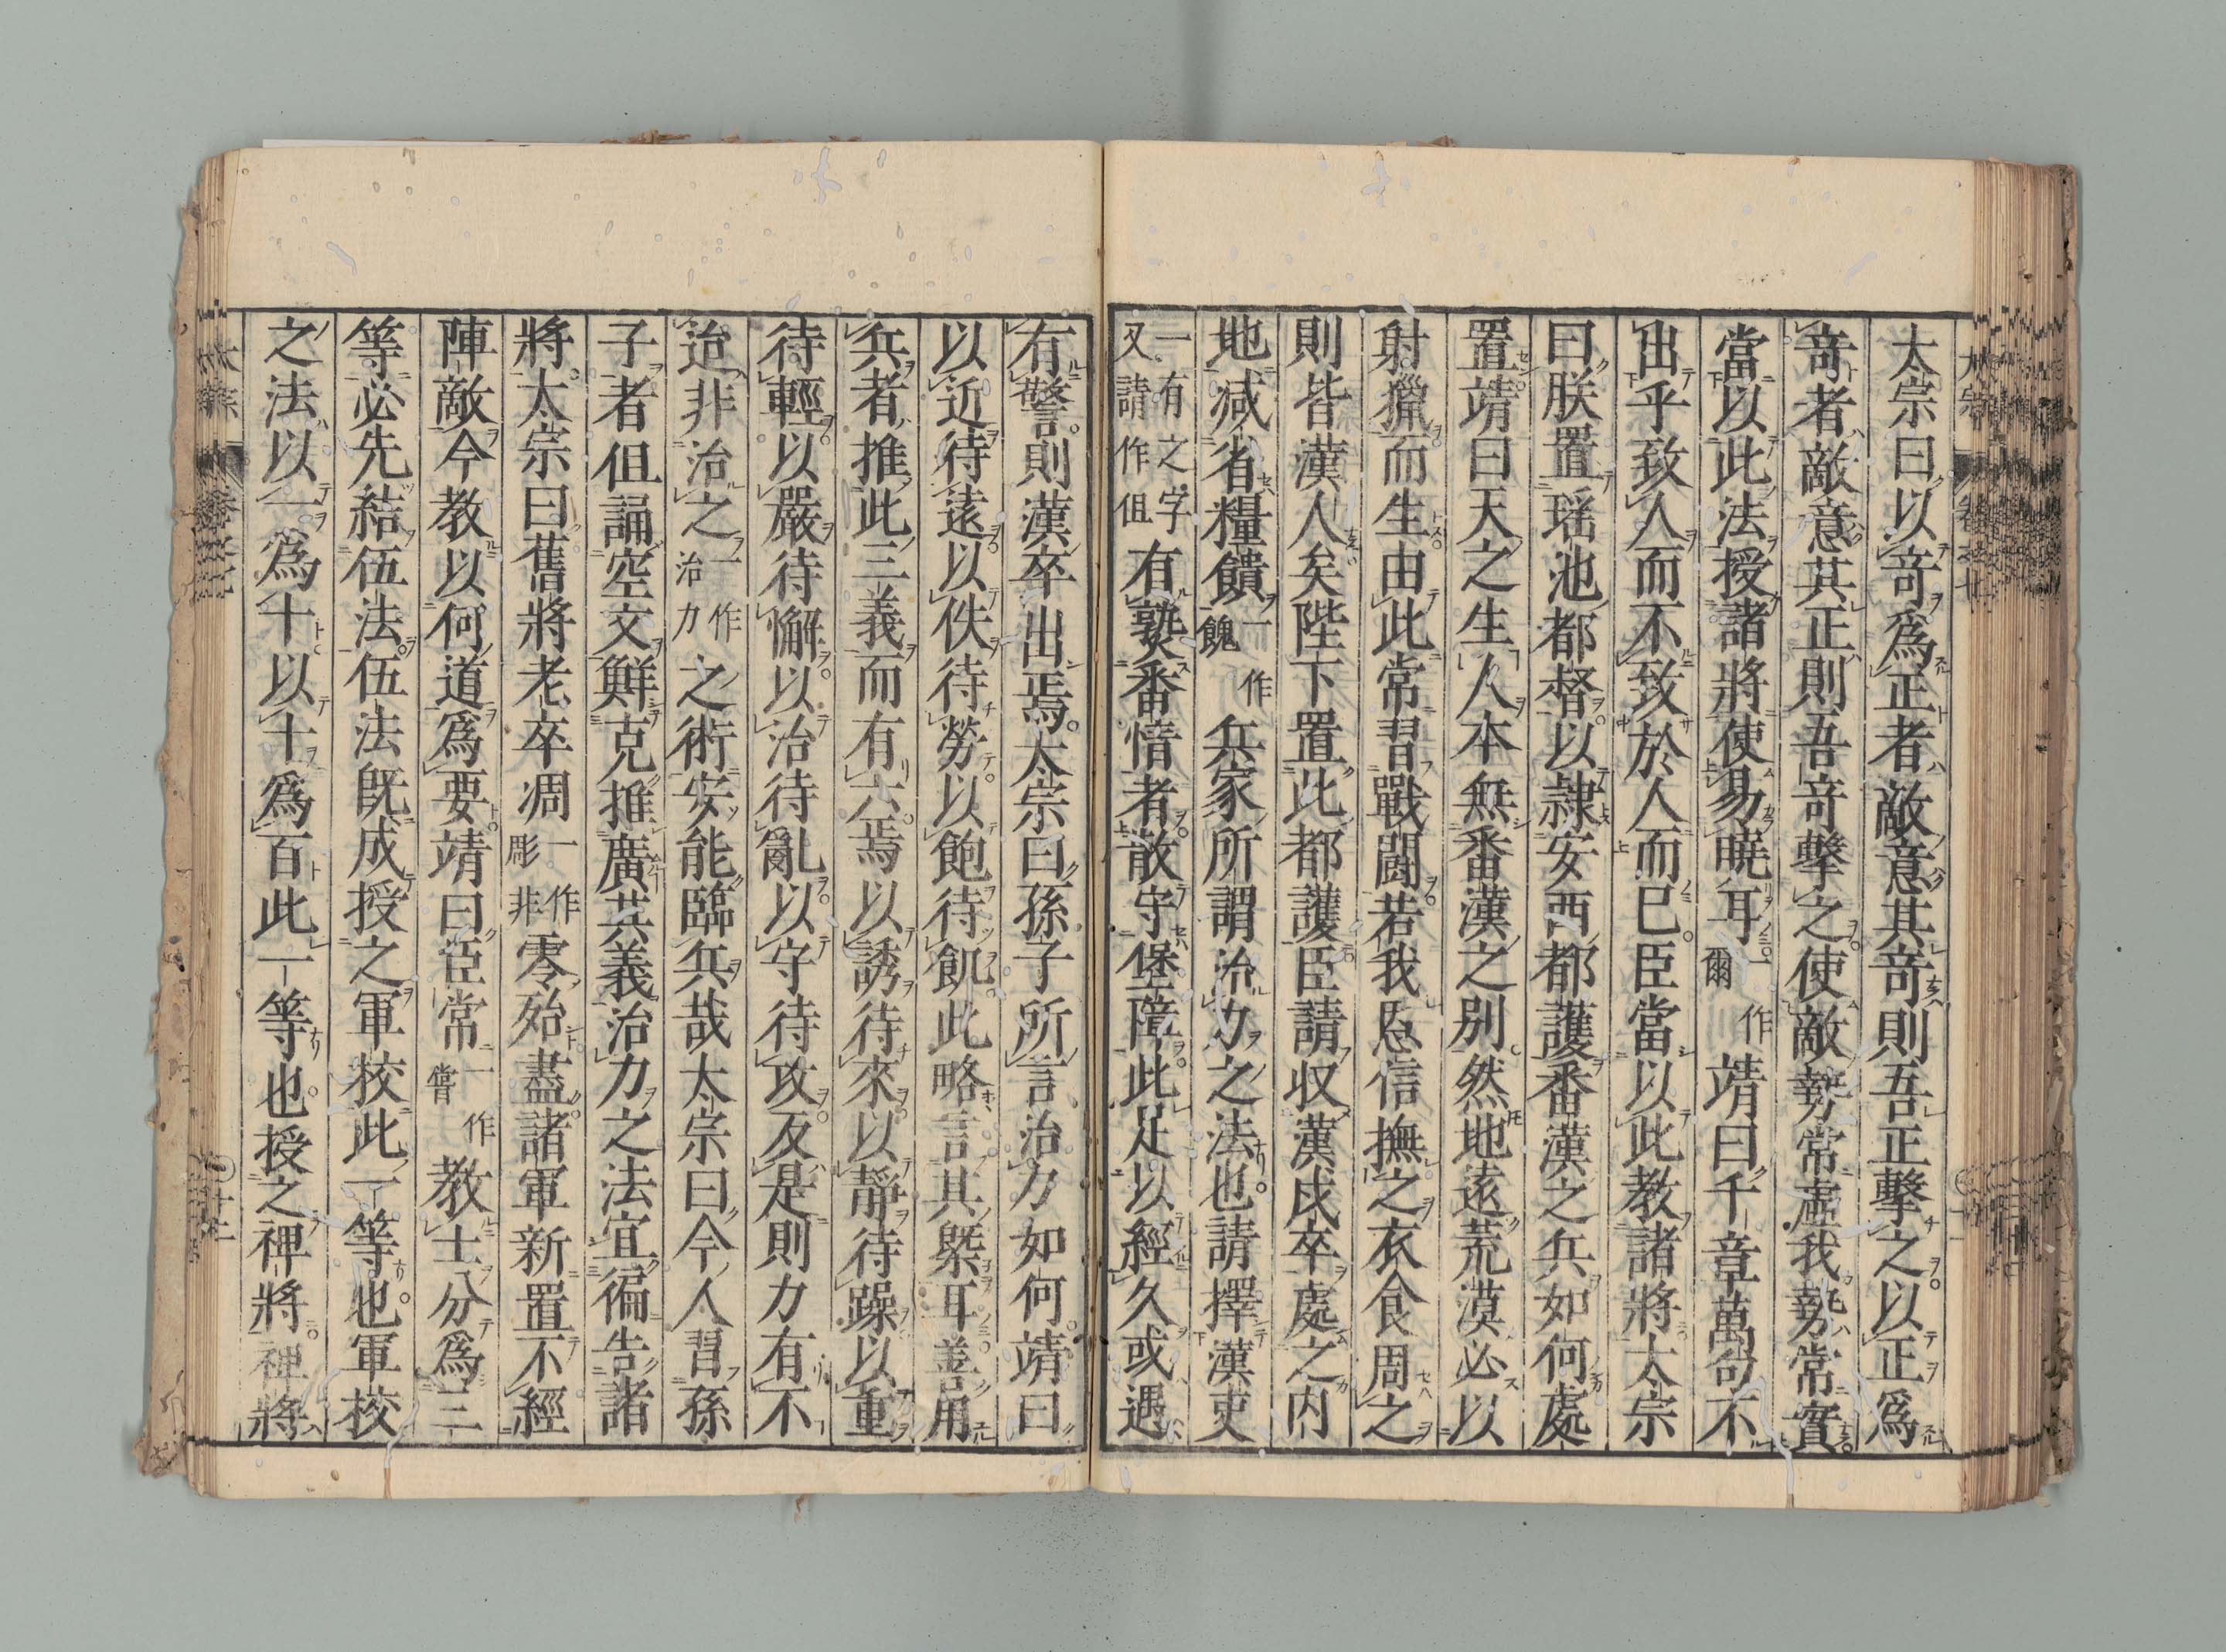 太宗曰以竒爲正者敵意其竒則吾正擊之以正爲
竒者敵意其正則吾竒擊之使敵勢常虛我勢常實
當以此法授諸將使易曉耳一作爾靖曰千章萬句不
出乎致人而不致於人而已臣當以此教諸將太宗
曰朕置瑶池都督以隷安西都護番漢之兵如何處
置靖曰天之生人本無番漢之別然地遠荒漠必以
射獵而生由此常習戰鬪若我恩信撫之衣食周之
則皆漢人矣陛下置此都護臣請収漢戍卒處之内
地减省糧饋一作餽兵家所謂治力之法也請擇漢吏
一有之字又請作但有熟番情者散守堡障此足以經久或遇
有警則漢卒出焉太宗曰孫子所言治力如何靖曰
以近待遠以佚待勞以飽待飢此略言其槩耳善用
兵者推此三義而有六焉以誘待來以靜待躁以重
待輕以嚴待懈以治待亂以守待攻反是則力有不
迨非治之一作治力之術安能臨兵哉太宗曰今人習孫
子者但誦空文鮮克推廣其義治力之法宜徧告諸
將太宗曰舊將老卒凋一作彫非零殆盡諸軍新置不經
陣敵今教以何道爲要靖曰臣常一作嘗教士分爲三
等必先結伍法伍法旣成授之軍校此一等也軍校
之法以一爲十以十爲百此一等也授之裨將裨將